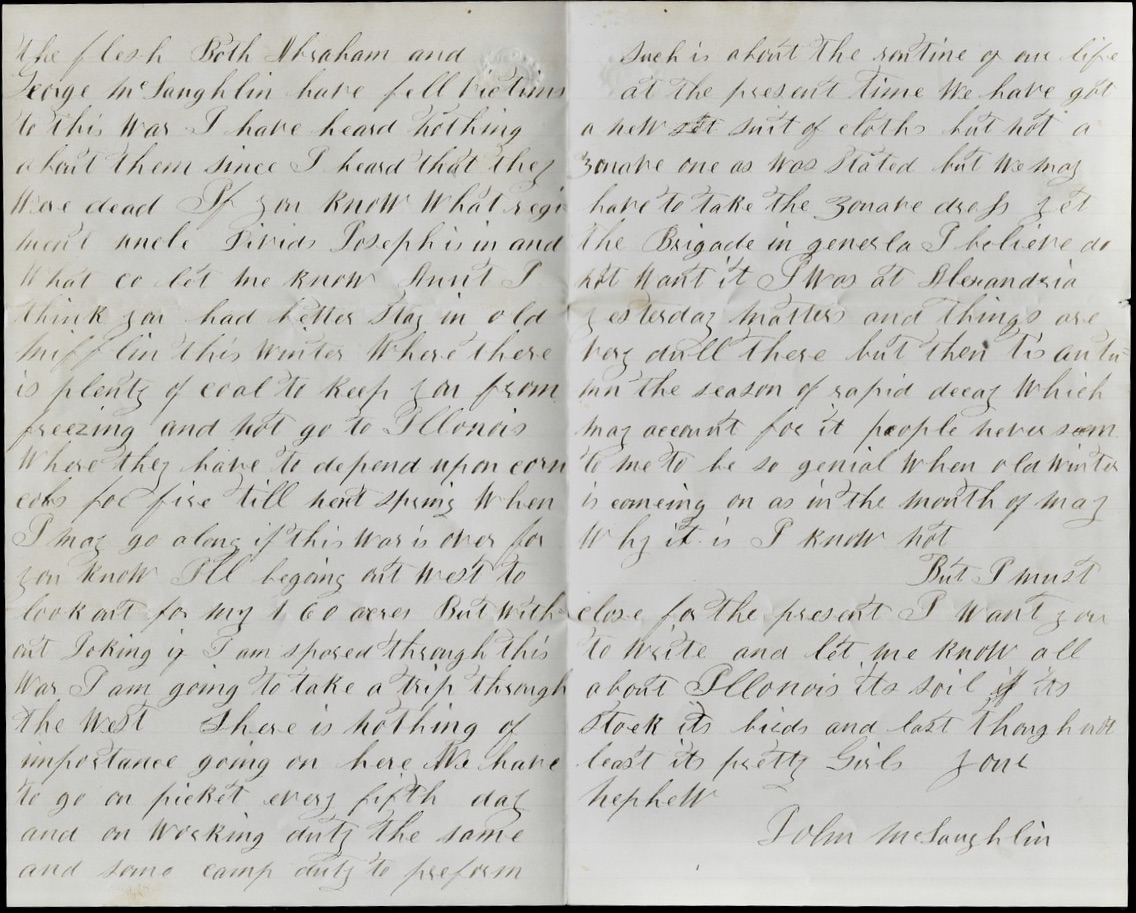 the flesh Both Abraham and
George McLaughlin have fell victims
to this war I have heard nothing
about them since I heard that they
were dead If you know what regi
ment uncle Divids Joseph is in and
what co let me know Aunt I
think you had better stay in old
Mifflin this winter where there
is plenty of coal to keep you from
freezing and not go to Illonois
where they have to depend upon corn
cobs for fire till next spring when
I may go along if this war is over for
you know I'll begoing out west to
look out for my 160 acres But with
out Joking if I am spared through this
war I am going to take a trip through
the west There is nothing of
importance going on here We have
to go on picket every fifth day
and on working duty the same
and some camp duty to preform
Such is about the routine of our life
at the present time We have got
a new suit of cloths but not a
zouave one as was stated but we may
have to take the zouave dress yet
the Brigade in generla I believe do
not want it I was at Alexandria
yesterday matters and things are
very dull there but then tis autu=
mn the season of rapid decay which
may account for it people never seem
to me to be so genial when old winter
is comeing on as in the month of may
why it is I know not
But I must
close for the present I want you
to write and let me know all
about Illonois its soil its
stock its birds and last though not
least its pretty Girls your
nephew
John McLaughlin